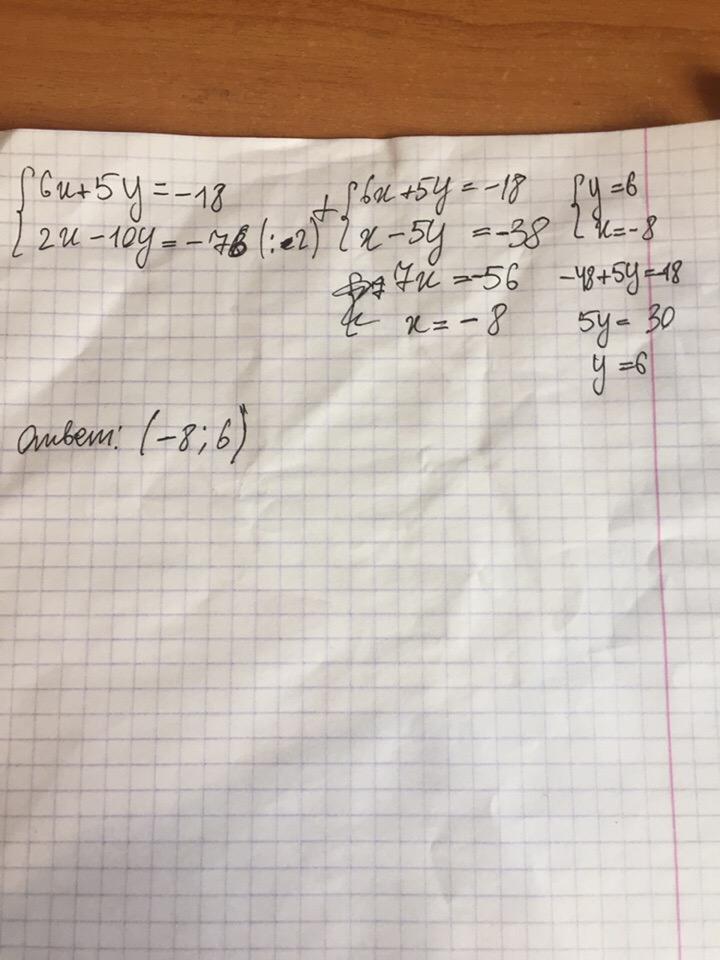 {6x+5y=-18
{2x-10y=-76 (:2)
+{6x+5y=-18
{x-5y=-38
7x=-56
x=-8
{y=6
{x=-8
-48+5y=-18
5y=30
y=6
Ответ: (-8;6)